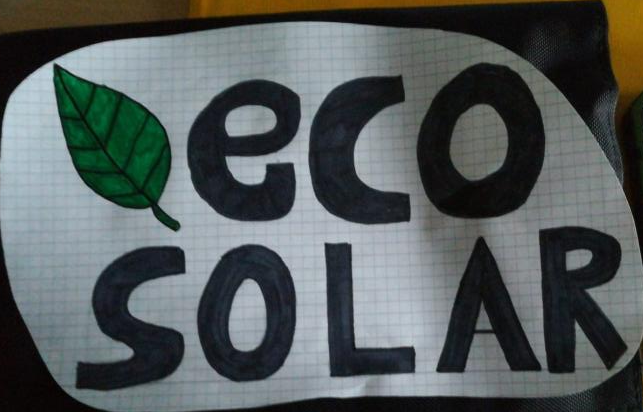 eco
SOLAR